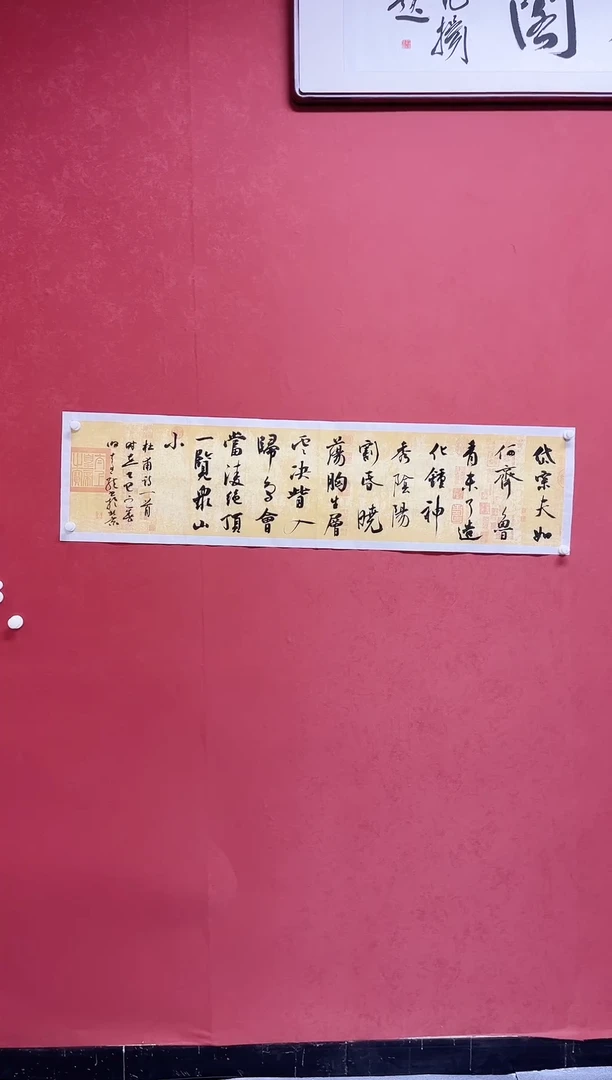 岱宗夫如
何齊魯
青未了造
化鍾神
秀陰陽
割昏曉
蕩胸生層
雲決眥入
歸鳥會
當凌絕頂
一覽衆山
小
杜甫詩一首
時在乙巳